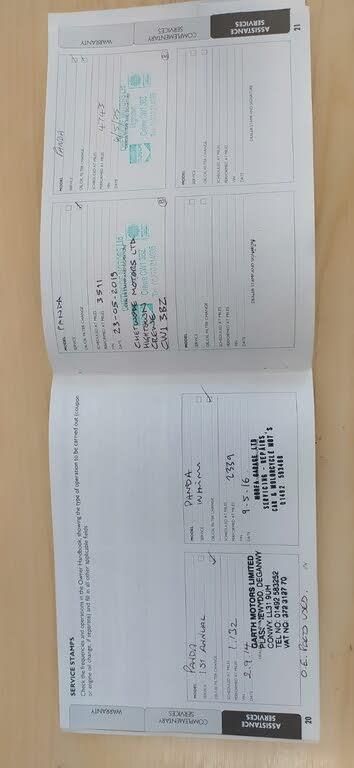 SERVICE STAMPS
Check the frequencies and operations in the Owner Handbook, showing the type of operation to be carried out (coupon
or engine oil change, if separate) and fill in all other applicable fields
MODEL PANDA
SERVICE 1ST ANNUAL
OIL/OIL FILTER CHANGE
SCHEDULED AT MILES
PERFORMED AT MILES 1,132
VIN
DATE 2.9.14
GARTH MOTORS LIMITED
PLAS-NEWYDD, DEGANWY
CONWY LL31 9UH
TEL NO. 01492 583252
VAT NO. 373 3127 70
O.E. PARTS USED.
MODEL PANDA
SERVICE
OIL/OIL FILTER CHANGE
SCHEDULED AT MILES
PERFORMED AT MILES 2339
VIN
DATE 9-5-16
GARAGE LTD
SERVICING - REPAIRS
CAR & MOTORCYCLE MOT'S
20
ASSISTANCE
SERVICES
COMPLEMENTARY
SERVICES
WARRANTY
MODEL PANDA
SERVICE
OIL/OIL FILTER CHANGE
SCHEDULED AT MILES
PERFORMED AT MILES 3511
VIN
DATE 23-05-2019
CHETWODE MOTORS LTD
HIGHTOWN
CREWE
CW1 3BZ
MODEL PANDA
SERVICE
OIL/OIL FILTER CHANGE
SCHEDULED AT MILES
PERFORMED AT MILES 4743
VIN
DATE
Crewe CW1 3BZ
MODEL
SERVICE
OIL/OIL FILTER CHANGE
SCHEDULED AT MILES
PERFORMED AT MILES
VIN
DATE
DEALER STAMP AND SIGNATURE
MODEL
SERVICE
OIL/OIL FILTER CHANGE
SCHEDULED AT MILES
PERFORMED AT MILES
VIN
DATE
DEALER STAMP AND SIGNATURE
WARRANTY
COMPLEMENTARY
SERVICES
ASSISTANCE
SERVICES
21